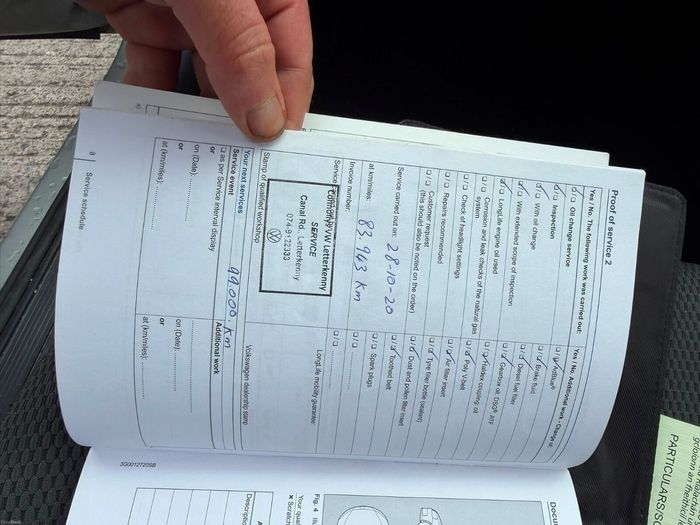 Proof of service 2
Yes / No. The following work was carried out:
☑/☐ Oil change service
☑/☐ Inspection
☑/☐ With oil change
☑/☐ With extended scope of inspection
☑/☐ LongLife engine oil used
☐/☐ Corrosion and leak checks of the natural gas system
☐/☐ Check of headlight settings
☐/☐ Repairs recommended
☐/☐ Customer request
(this should also be noted on the order)
Service carried out on: 28-10-20
at km/miles: 83.943 km
Invoice number:
VW Letterkenny
SERVICE
Canal Rd. Letterkenny
074-9122333
Stamp of qualified workshop
Your next services
Service event
☐ as per Service interval display
or
on (Date):
or
at (km/miles):
99.000. km
Yes / No. Additional work - Change of:
AdBlue®
Brake fluid
Diesel fuel filter
Gearbox oil: DSG®, ATF
Haldex coupling oil
Poly V-belt
Air filter insert
Tyre filler bottle (sealant)
Dust and pollen filter insert
Toothed belt
☐/☐ Spark plugs
☐/☐
☐/☐
LongLife mobility guarantee:
Volkswagen dealership stamp
Additional work
on (Date):
or
at (km/miles):
8 Service schedule
3G0012720SB
Fig. 4
Your
Descriptio
PARTICULARS/S